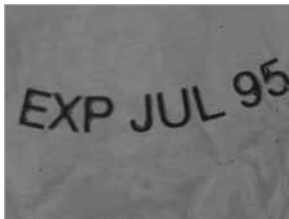 EXP JUL 95